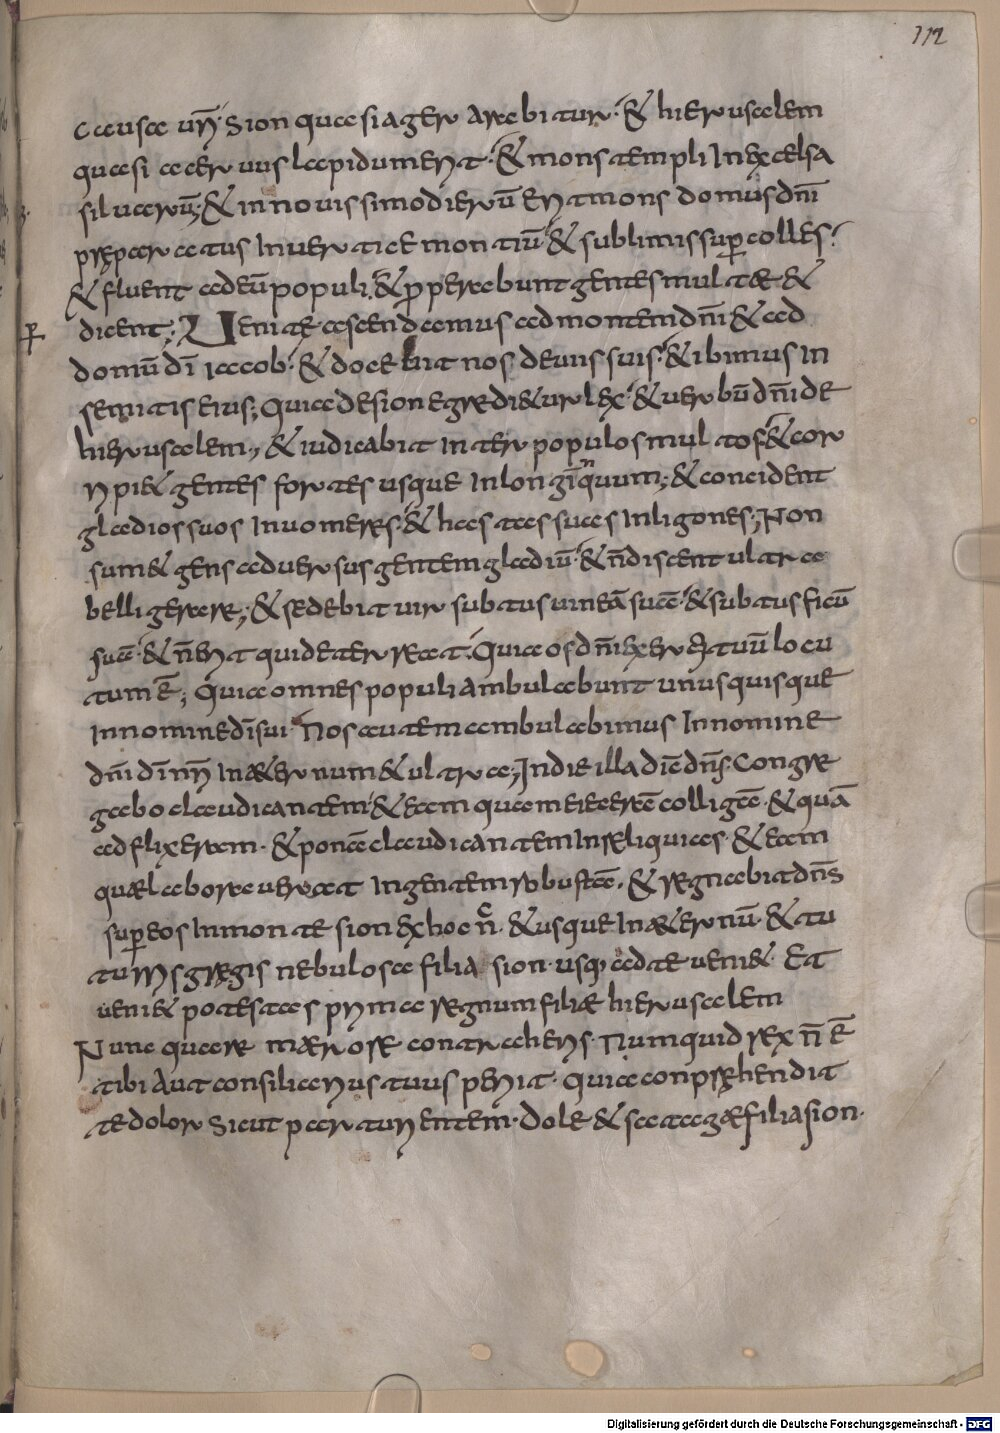 112
causa ur̄i sion quasi ager arabitur · & hierusalem
quasi aceruus lapidum erit · & mons templi in excelsa
siluarū; & in nouissimo dierū erit mons domus dn̄i
pręparatus in uertice montiū & sublimis sup colles ·
& fluent ad eū populi · & pperabunt gentes multæ &
dicent; Uenite ascendamus ad montem dn̄i & ad
domū dī iacob · & docebit nos de uiis suis · & ibimus in
semitis eius; Quia de sion egrædi&ur lex · & uerbū dn̄i de
hierusalem, & iudicabit inter populos multos & cor
ripi& gentes fortes usque in longīquum; & concident
gladios suos in uomeres · & hastas suas in ligones; Non
sum& gens aduersus gentem gladiū · & n̄ discent ultra
belligerare; & sedebit uir subtus uineā suā · & subtus ficū
suā · & n̄ erit qui deterreat · Quia os dn̄i exercituū locu
tum ē; Quia omnes populi ambulabunt unusquisque
in nomine dī sui · Nos autem ambulabimus in nomine
dn̄i dī nr̄i in æternum & ultra; In die illa dic̄ dn̄s · Congre
gabo claudicantem · & eam quam eiecerā colligā · & quā
adflixeram · & ponā claudicantem in reliquias · & eam
quæ laborauerat in gentem robustā · & regnabit dn̄s
sup eos in monte sion ex hoc n̄c · & usque in æternū · & tu
turris gregis nebulosa filia sion · usq; ad te ueni& · Et
ueni& potestas prima regnum filiæ hierusalem
Nunc quare mærore contraheris · Numquid rex n̄ ē
tibi Aut consiliarius tuus periit · Quia conprehendit
te dolor sicut parturientem · Dole & satage filia sion ·
Digitalisierung gefördert durch die Deutsche Forschungsgemeinschaft - DFG